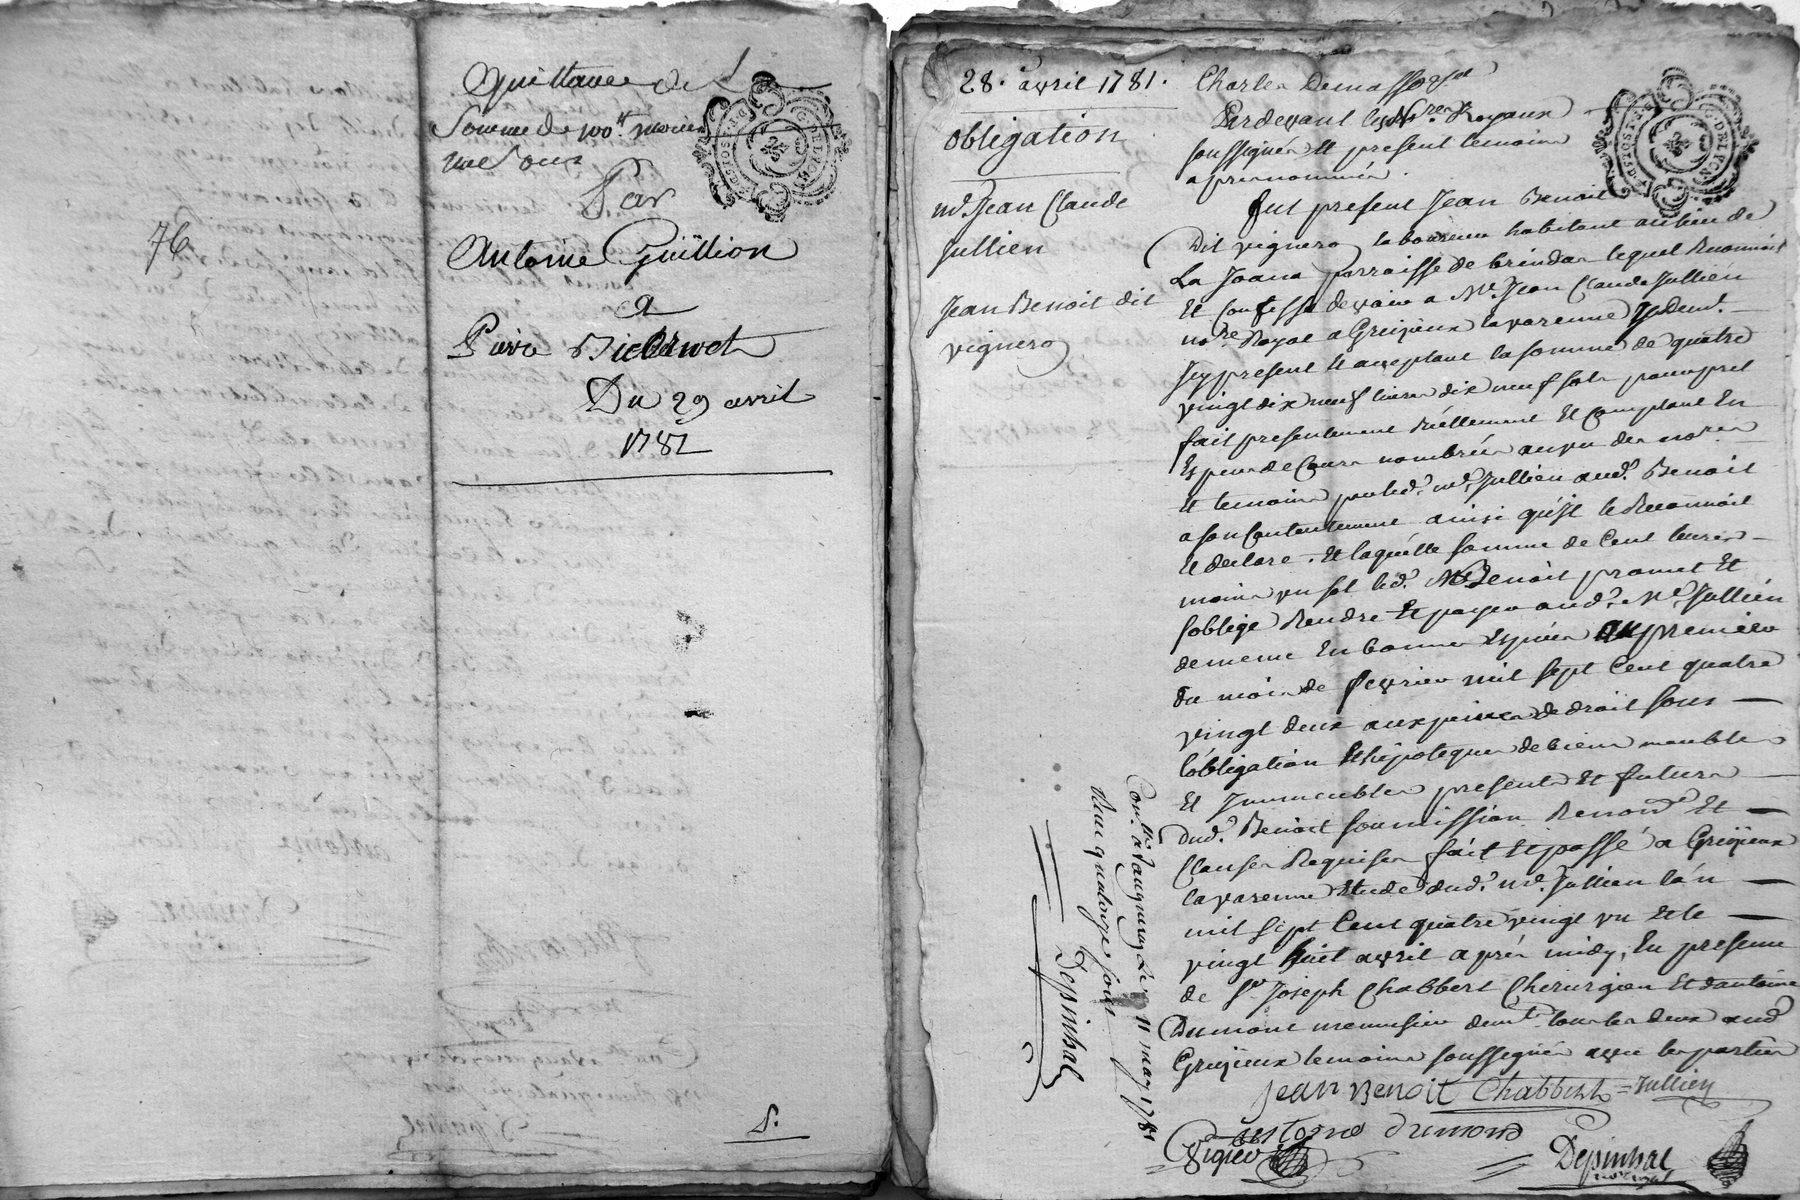 Quittance de La
Somme de 100 tt moins
une Sous
Par
Antoine Guillion
a
Pierre
Du 29 avril
1781
76
S.
28. avril 1781.
obligation
me. Jean Claude
Jullien
Jean Benoit dit
vignero
Charles Demasso
Pardevant les No.res Royaux
soussignés Et present temoins
apres nommés.
fut present Jean Benoit
Dit vignero laboureur habitant au lieu de
La Joana parroisse de brindas lequel Reconnoit
Et Confesse devoir a Me. Jean Claude Jullien
no.re Royal a Grezieux la varenne y demt.
Icy present Et acceptant la somme de quatre
vingt dix neuf livres dix neuf sols pour pret
fait presentement Réellement Et Comptant En
Especes de Cours nombrées au vu des no.res
Et temoins par led. me. Jullien aud. Benoit
a son Contentement ainsi qu'il le Reconnoit
Et declare. Et laquelle somme de Cent livres
moins un sol led. Benoit promet Et
s'oblige Rendre Et payer aud. Me. Jullien
de meme En bonnes Especes au premier
du mois de fevrier mil sept Cent quatre
vingt deux aux peines de droit sous
l'obligation Et hipoteques de biens meubles
Et Immeubles presents Et futurs
dud. Benoit soumission Renon.on Et
Clauses Requises fait Et passé a Grezieux
la varenne Etude dud. me. Jullien l'an
mil sept Cent quatre vingt un Et le
vingt huit avril après midy, En presence
de Sr. Joseph Chabbert Chirurgien Et d'antoine
Dumont menuisier demt. tous les deux aud.
Grezieux temoins soussignés avec les parties
Jean Benoit Chabbert Jullien
antoine dumond
Depinhac
Con.llé a Vaugneray Le 11 may 1781
Reçu quatorze sous
Depinhac